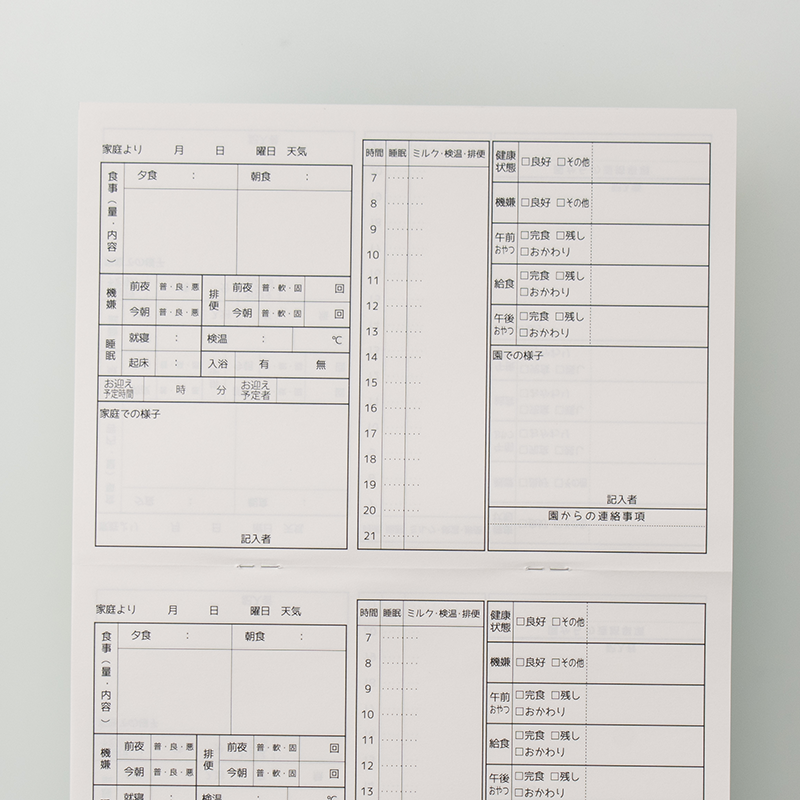 家庭より 月 日 曜日 天気
食事(量・内容) 夕食 : 朝食 :
機嫌 前夜 普・良・悪 排便 前夜 普・軟・固 回
今朝 普・良・悪 今朝 普・軟・固 回
睡眠 就寝 : 検温 : ℃
起床 : 入浴 有 無
お迎え予定時間 時 分 お迎え予定者
家庭での様子
記入者
時間 睡眠 ミルク・検温・排便
7
8
9
10
11
12
13
14
15
16
17
18
19
20
21
健康状態 □良好 □その他
機嫌 □良好 □その他
午前おやつ □完食 □残し
□おかわり
給食 □完食 □残し
□おかわり
午後おやつ □完食 □残し
□おかわり
園での様子
記入者
園からの連絡事項
家庭より 月 日 曜日 天気
食事(量・内容) 夕食 : 朝食 :
機嫌 前夜 普・良・悪 排便 前夜 普・軟・固 回
今朝 普・良・悪 今朝 普・軟・固 回
就寝 : 検温 : ℃
時間 睡眠 ミルク・検温・排便
7
8
9
10
11
12
13
健康状態 □良好 □その他
機嫌 □良好 □その他
午前おやつ □完食 □残し
□おかわり
給食 □完食 □残し
□おかわり
午後 □完食 □残し
□おかわり